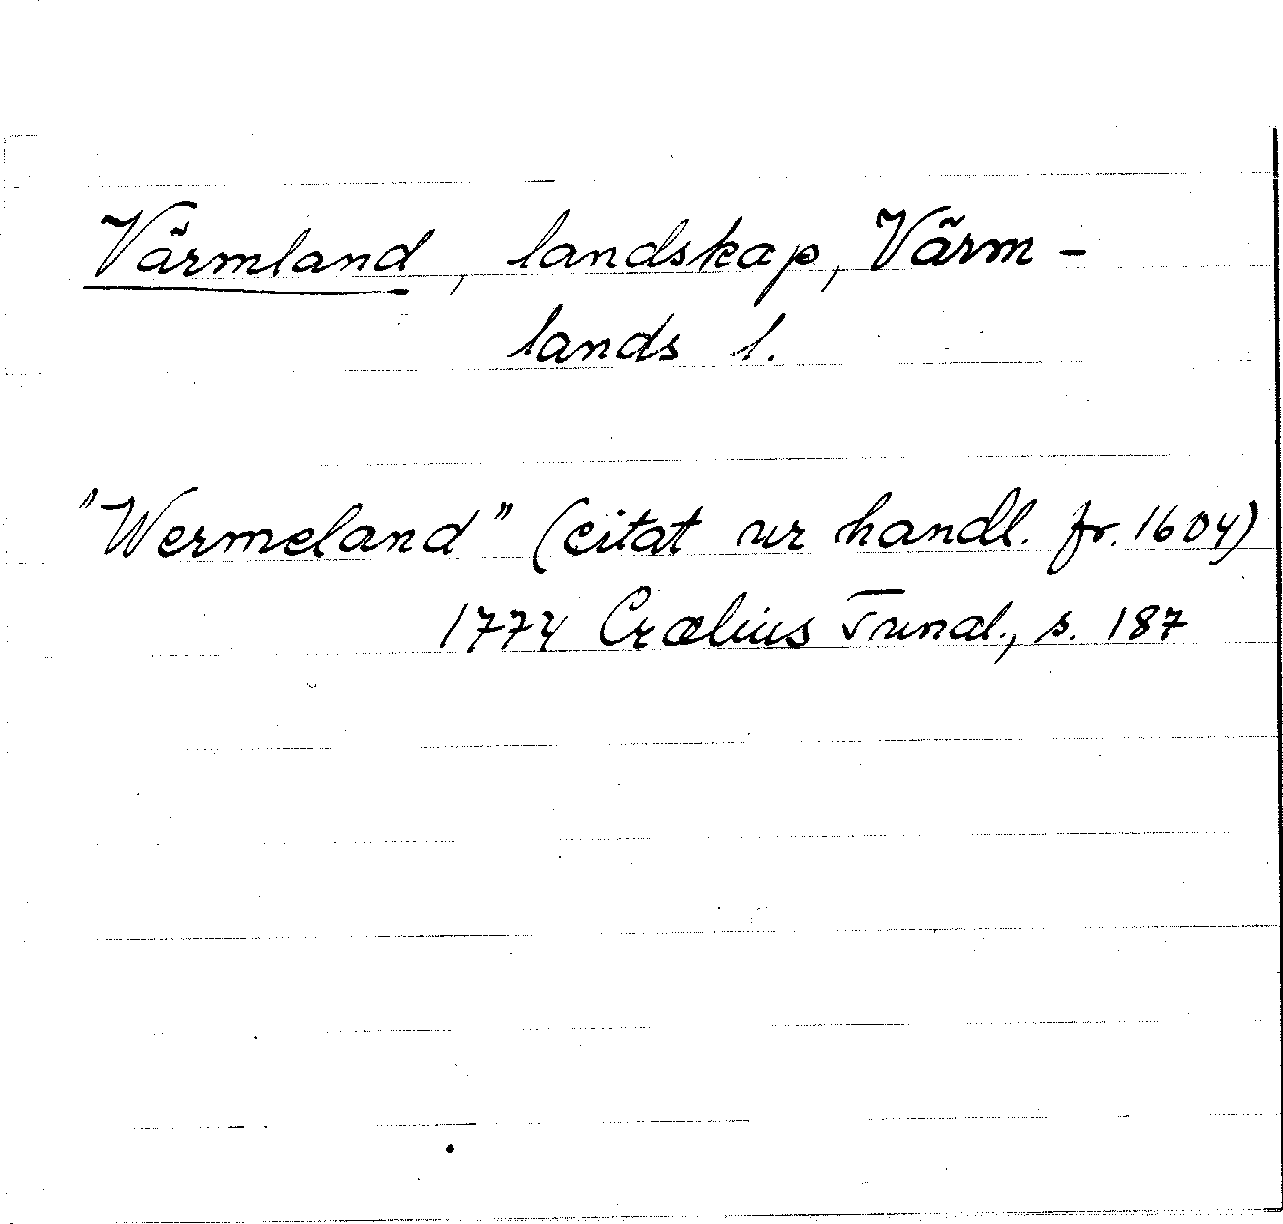 Värmland, landskap, Värm-
lands l.
"Wermeland" (citat ur handl. fr. 1604)
1774 Crælius Tunal., s. 187